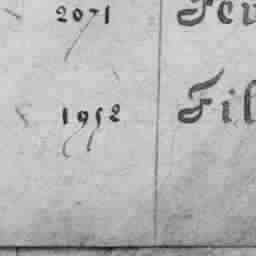 2071 Feu
1952 Fil